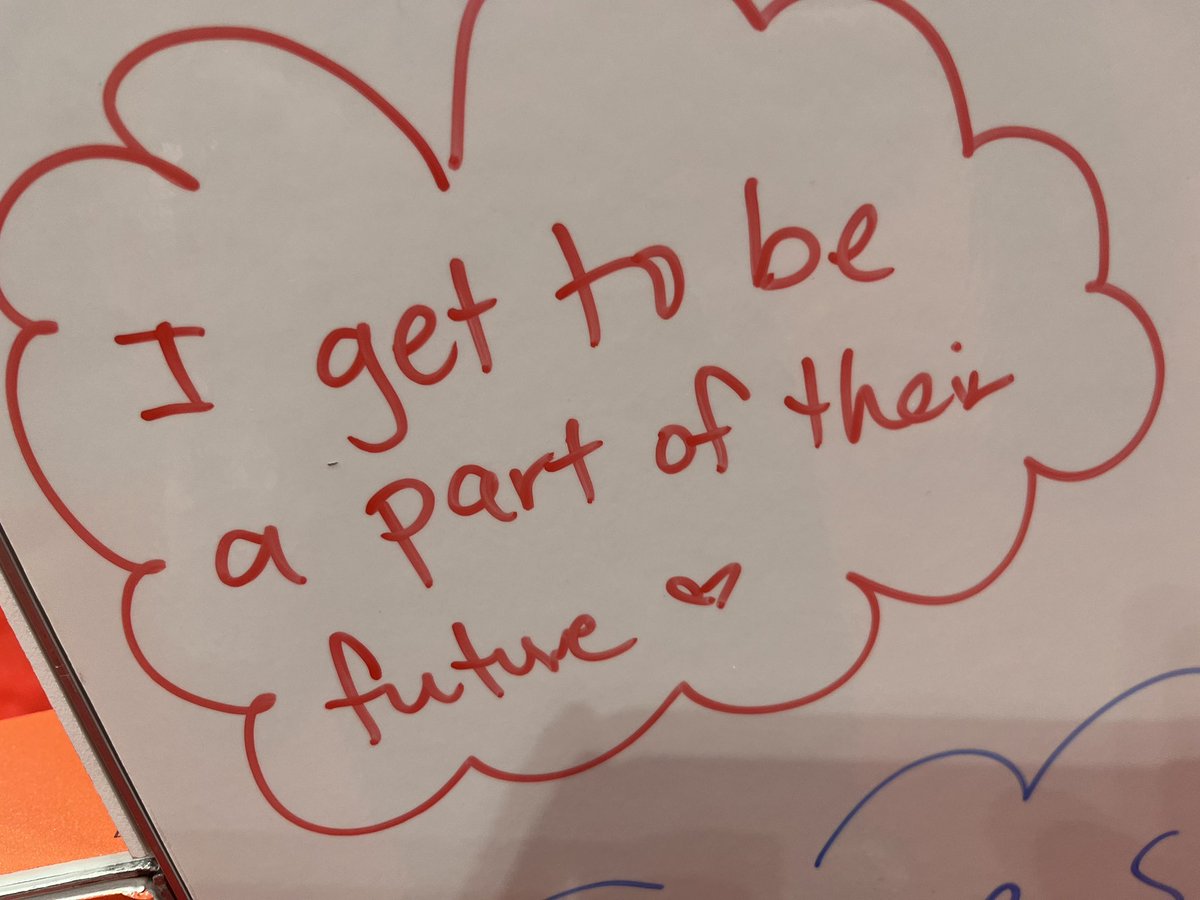 I get to be
a part of their
future ♡